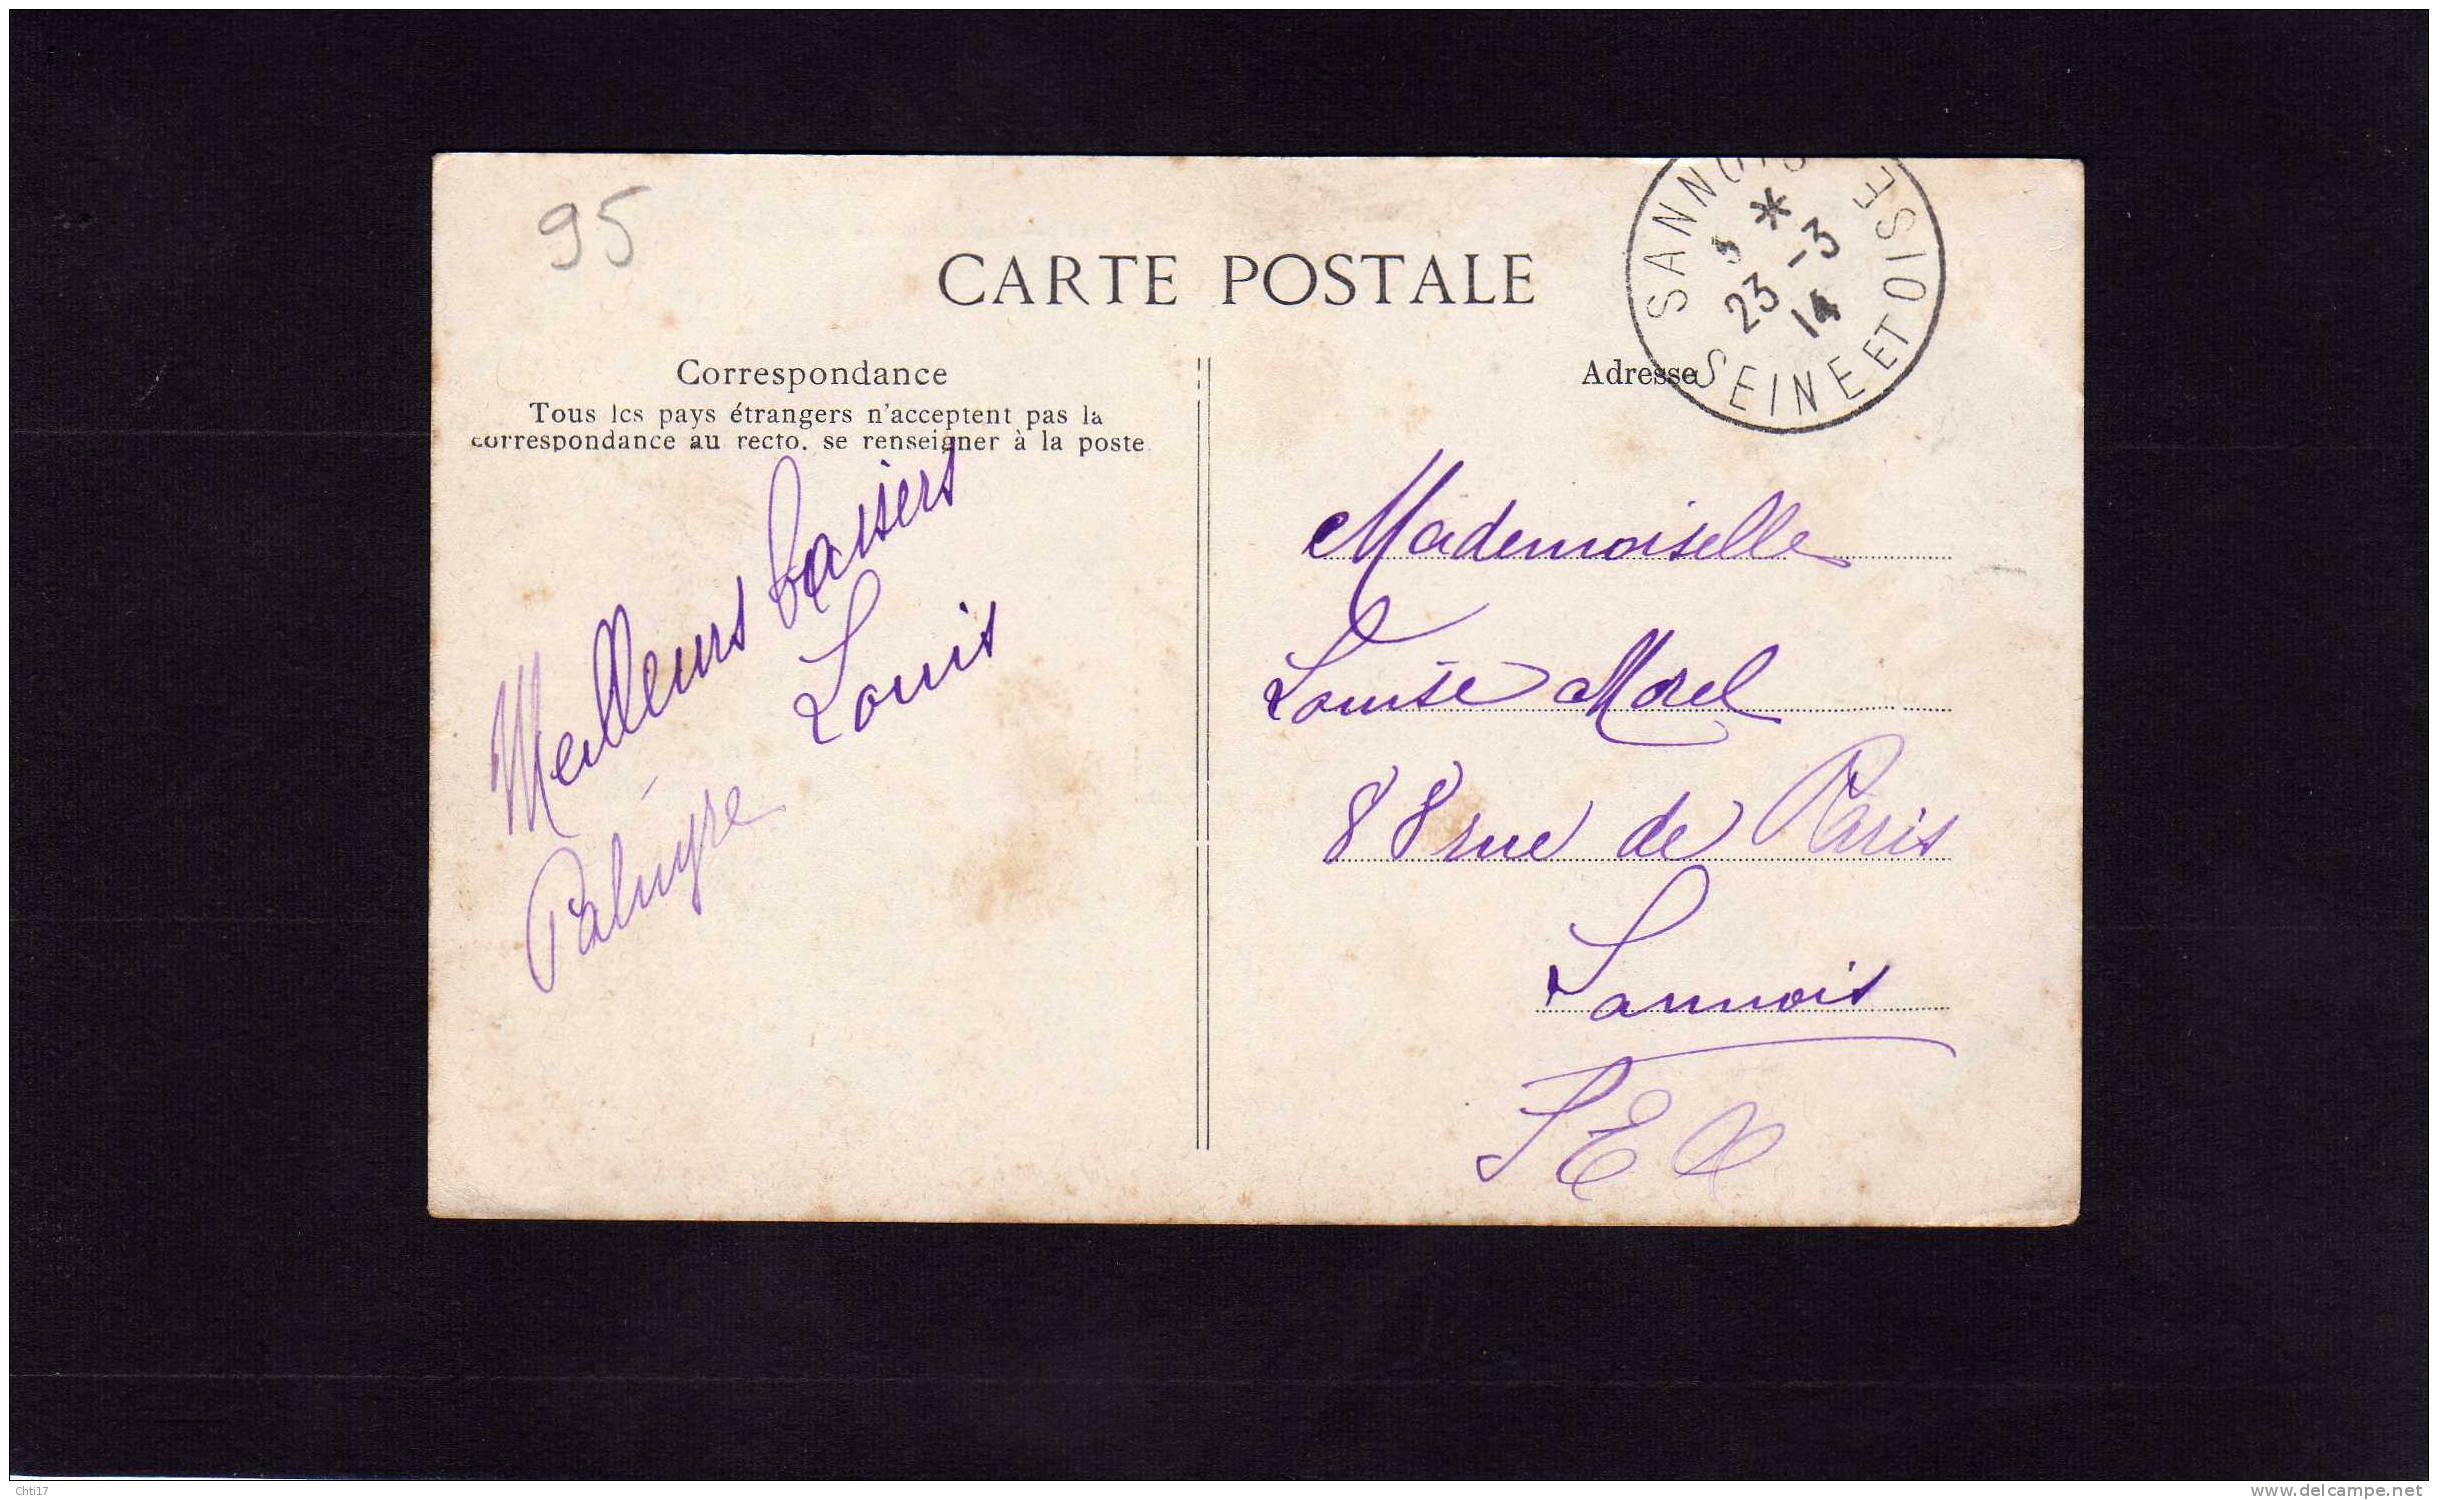 95
CARTE POSTALE
SANNOIS
SEINE ET OISE
*
23 -3
14
Correspondance
Tous les pays étrangers n'acceptent pas la
correspondance au recto, se renseigner à la poste
Meilleurs baisers
Louis
Palmyre
Adresse
Mademoiselle
Louise Morel
88 rue de Paris
Sannois
S E O
Chti17
www.delcampe.net